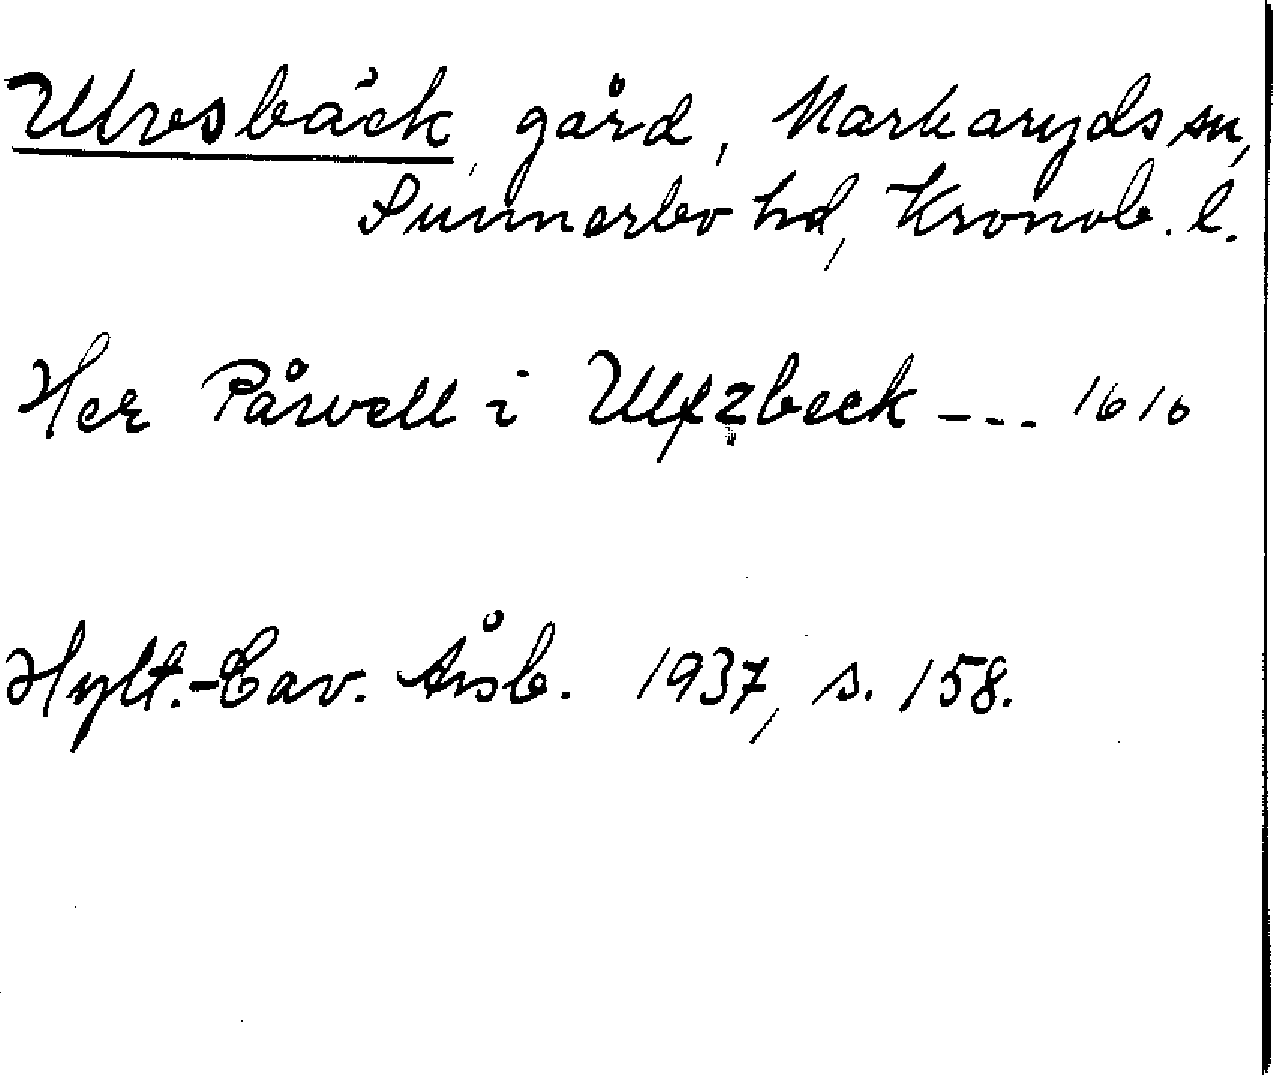 Ulvsbäck, gård, Markaryds sn,
Sunnerbo hd, Kronob. l.
Her Påwell i Ulfzbeck --- 1610
Hylt.-Cav. Årsb. 1937, s. 158.